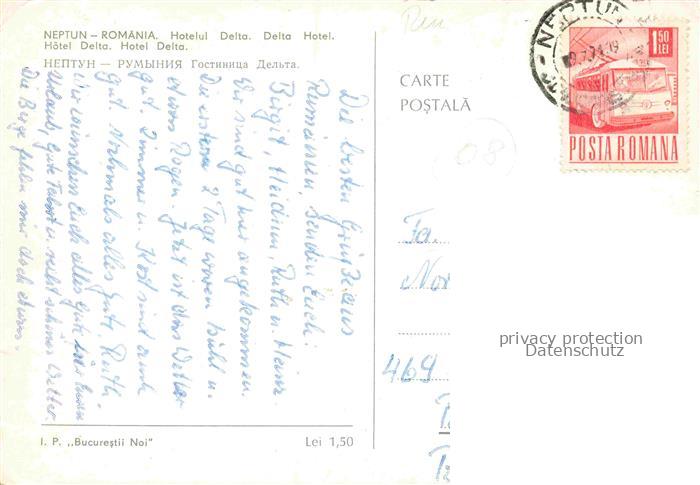 NEPTUN – ROMÂNIA. Hotelul Delta. Delta Hotel.
Hôtel Delta. Hotel Delta.
НЕПТУН — РУМЫНИЯ Гостиница Дельта.
Die besten Grüße aus
Rumänien, senden Euch:
Birgit, Heidrun, Ruth u. Heinz.
Wir sind gut hier angekommen.
Die ersten 2 Tage waren kühl u.
etwas Regen. Jetzt ist das Wetter
gut. Zimmer u. Kost sind auch
gut. Nochmals alles Gute, Ruth.
Wir wünschen Euch alles Gute
Urlaub, Gute Fahrt u. recht schönes Wetter.
Die Berge fehlen mir doch etwas.
I. P. „Bucureştii Noi"
Lei 1,50
CARTE
POŞTALĂ
08
Fa.
Nor
469
NEPTUN
7.71.19
1,50
LEI
POSTA ROMANA
privacy protection
Datenschutz